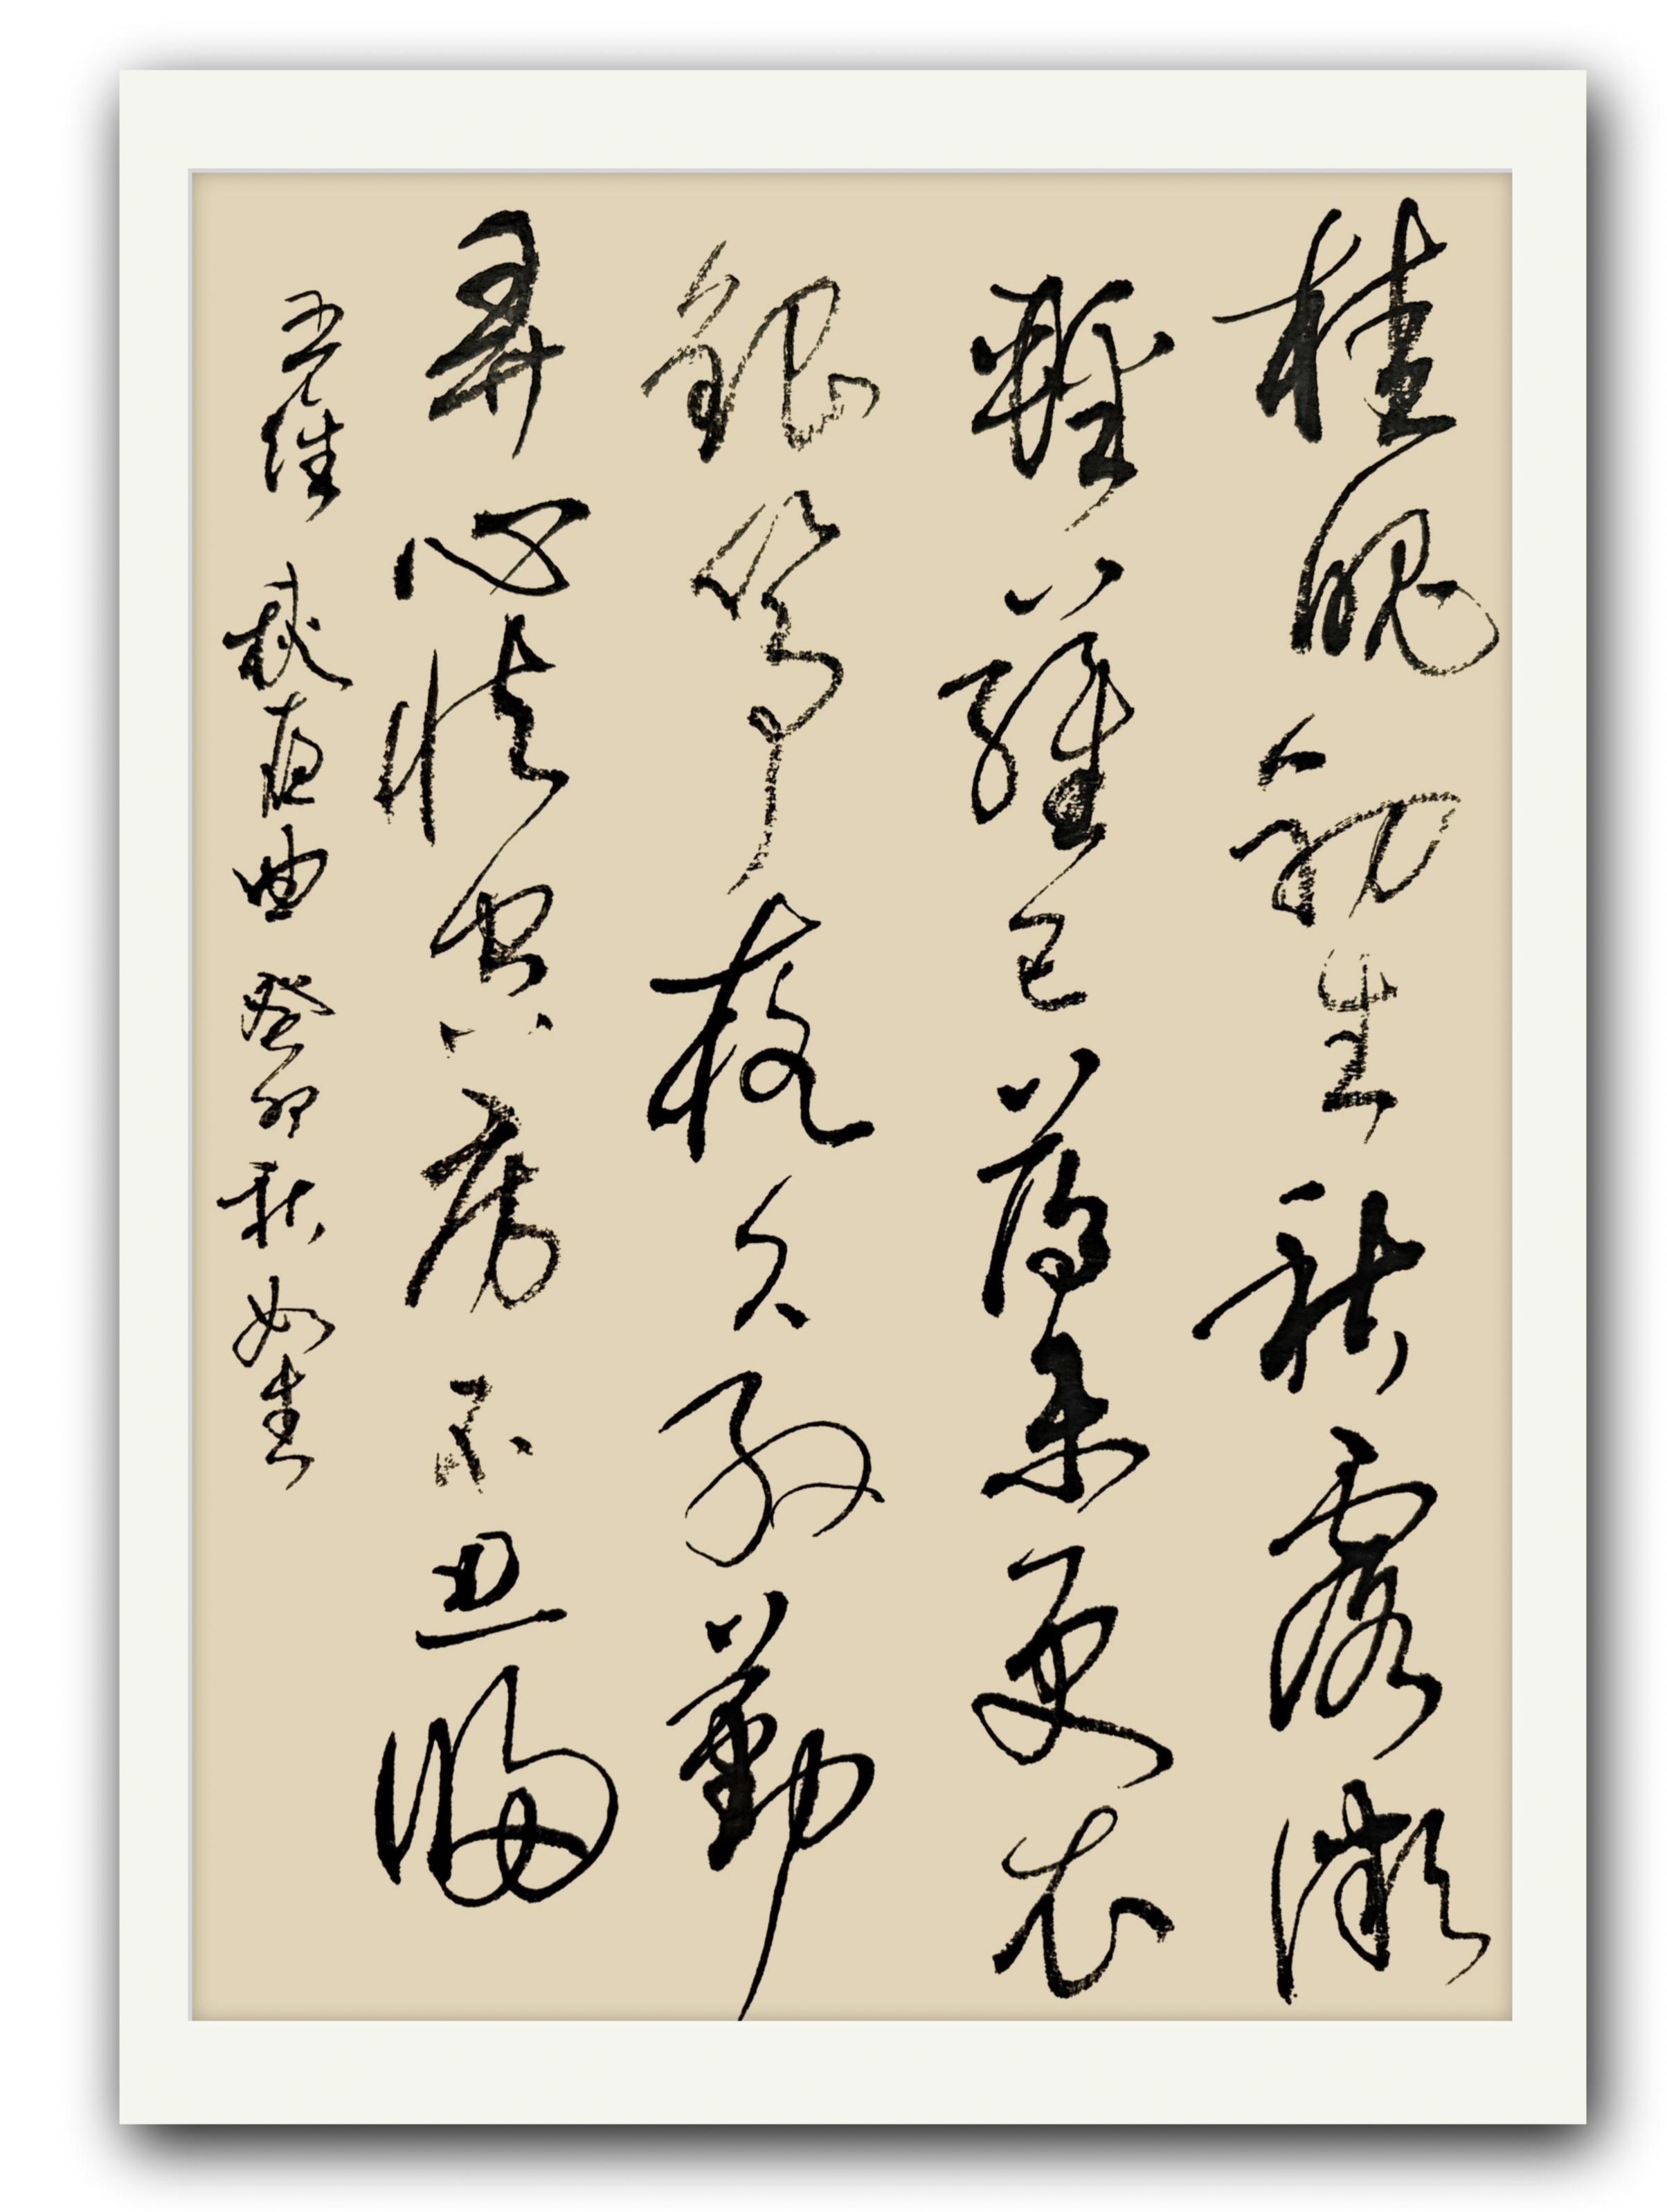 桂魄初生秋露微
輕羅已薄未更衣
銀箏夜久殷勤
弄心怯空房不忍歸
王維 秋夜曲 癸卯秋 如生